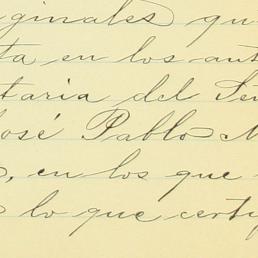 iginales qu
ta en los aut
taria del Señ
José Pablo M
, en los que
lo que certif